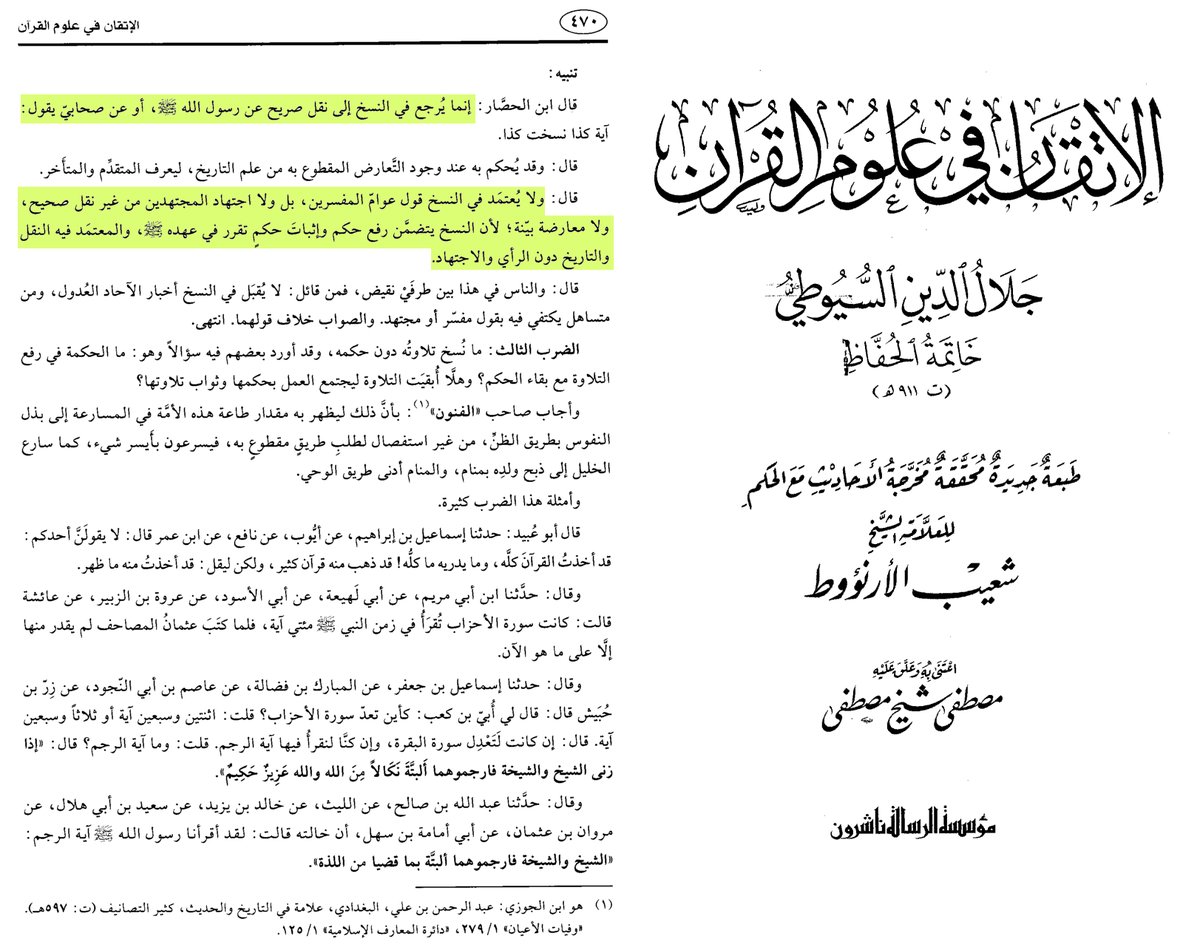 ٤٧٠
الإتقان في علوم القرآن
تنبيه:
قال ابن الحصَّار: إنما يُرجع في النسخ إلى نقل صريح عن رسول الله ﷺ، أو عن صحابيّ يقول:
آية كذا نسخت كذا.
قال: وقد يُحكم به عند وجود التَّعارض المقطوع به من علم التاريخ، ليعرف المتقدِّم والمتأخر.
قال: ولا يُعتمَد في النسخ قول عوامّ المفسرين، بل ولا اجتهاد المجتهدين من غير نقل صحيح،
ولا معارضة بيّنة؛ لأن النسخ يتضمَّن رفع حكم وإثباتَ حكمٍ تقرر في عهده ﷺ، والمعتمَد فيه النقل
والتاريخ دون الرأي والاجتهاد.
قال: والناس في هذا بين طرفَيْ نقيض، فمن قائل: لا يُقبَل في النسخ أخبار الآحاد العُدول، ومن
متساهل يكتفي فيه بقول مفسّر أو مجتهد. والصواب خلاف قولهما. انتهى.
الضرب الثالث: ما نُسخ تلاوتُه دون حكمه، وقد أورد بعضهم فيه سؤالاً وهو: ما الحكمة في رفع
التلاوة مع بقاء الحكم؟ وهلَّا أُبقيَت التلاوة ليجتمع العمل بحكمها وثواب تلاوتها؟
وأجاب صاحب «الفنون»(١): بأنَّ ذلك ليظهر به مقدار طاعة هذه الأمَّة في المسارعة إلى بذل
النفوس بطريق الظنِّ، من غير استفصال لطلبِ طريقٍ مقطوعٍ به، فيسرعون بأَيسر شيء، كما سارع
الخليل إلى ذبح ولدِه بمنام، والمنام أدنى طريق الوحي.
وأمثلة هذا الضرب كثيرة.
قال أبو عُبيد: حدثنا إسماعيل بن إبراهيم، عن أيُّوب، عن نافع، عن ابن عمر قال: لا يقولَنَّ أحدكم:
قد أخذتُ القرآنَ كلَّه، وما يدريه ما كلُّه! قد ذهب منه قرآن كثير، ولكن ليقل: قد أخذتُ منه ما ظهر.
وقال: حدَّثنا ابن أبي مريم، عن أبي لَهيعة، عن أبي الأسود، عن عروة بن الزبير، عن عائشة
قالت: كانت سورة الأحزاب تُقرَأُ في زمن النبي ﷺ مئتي آية، فلما كتَبَ عثمانُ المصاحف لم يقدر منها
إلَّا على ما هو الآن.
وقال: حدثنا إسماعيل بن جعفر، عن المبارك بن فضالة، عن عاصم بن أبي النّجود، عن زِرّ بن
حُبَيش قال: قال لي أُبيّ بن كعب: كأين تعدّ سورة الأحزاب؟ قلت: اثنتين وسبعين آية أو ثلاثاً وسبعين
آية. قال: إن كانت لَتَعْدِل سورة البقرة، وإن كنَّا لنقرأُ فيها آية الرجم. قلت: وما آية الرجم؟ قال: «إذا
زنى الشيخ والشيخة فارجموهما ألبتَّةَ نَكَالاً مِنَ الله والله عَزِيزٌ حَكِيمٌ».
وقال: حدَّثنا عبد الله بن صالح، عن الليث، عن خالد بن يزيد، عن سعيد بن أبي هلال، عن
مروان بن عثمان، عن أبي أمامة بن سهل، أن خالته قالت: لقد أقرأنا رسول الله ﷺ آية الرجم:
«الشيخ والشيخة فارجموهما ألبتَّة بما قضيا من اللذة».
(١) هو ابن الجوزي: عبد الرحمن بن علي، البغدادي، علامة في التاريخ والحديث، كثير التصانيف (ت: ٥٩٧هـ).
«وفيات الأعيان» ١/ ٢٧٩، «دائرة المعارف الإسلامية» ١/ ١٢٥.
الإتقان في علوم القرآن
جلال الدين السيوطي
خاتمة الحفاظ
(ت ٩١١ هـ)
طبعة جديدة محققة مخرجة الأحاديث مع الحكم
للعلامة الشيخ
شعيب الأرنؤوط
اعتنى به وعلق عليه
مصطفى شيخ مصطفى
مؤسسة الرسالة ناشرون